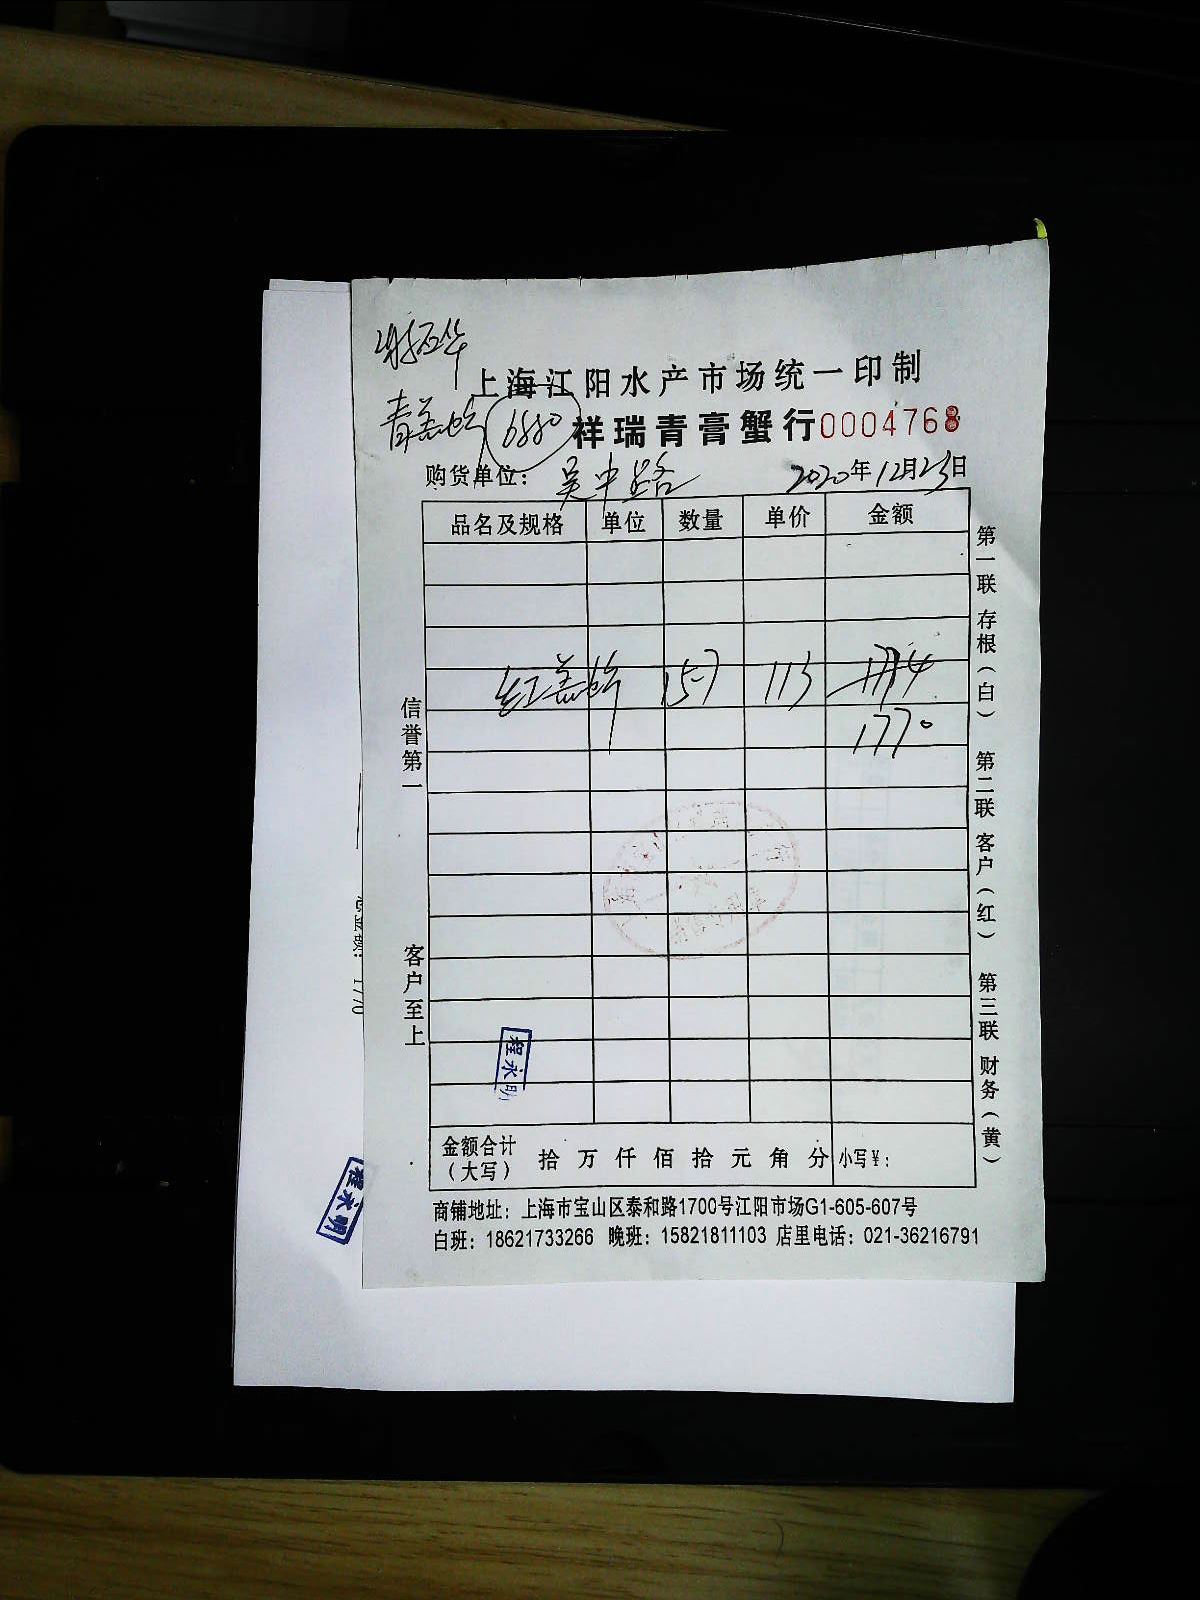 上海江阳水产市场统一印制
6880
祥瑞青膏蟹行
0004768
购货单位： 吴中路
2020年12月23日
品名及规格 单位 数量 单价 金额
红膏蟹 157 113 1774
1770
信誉第一
客户至上
第一联 存根（白） 第二联 客户（红） 第三联 财务（黄）
程永明
金额合计（大写） 拾 万 仟 佰 拾 元 角 分 小写￥：
商铺地址：上海市宝山区泰和路1700号江阳市场G1-605-607号
白班：18621733266 晚班：15821811103 店里电话：021-36216791
程永明